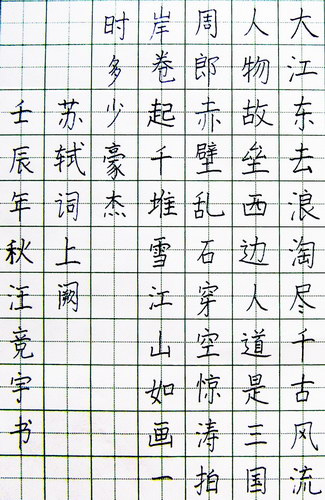 大江东去浪淘尽千古风流
人物故垒西边人道是三国
周郎赤壁乱石穿空惊涛拍
岸卷起千堆雪江山如画一
时多少豪杰
苏轼词上阙
壬辰年秋汪竞宇书